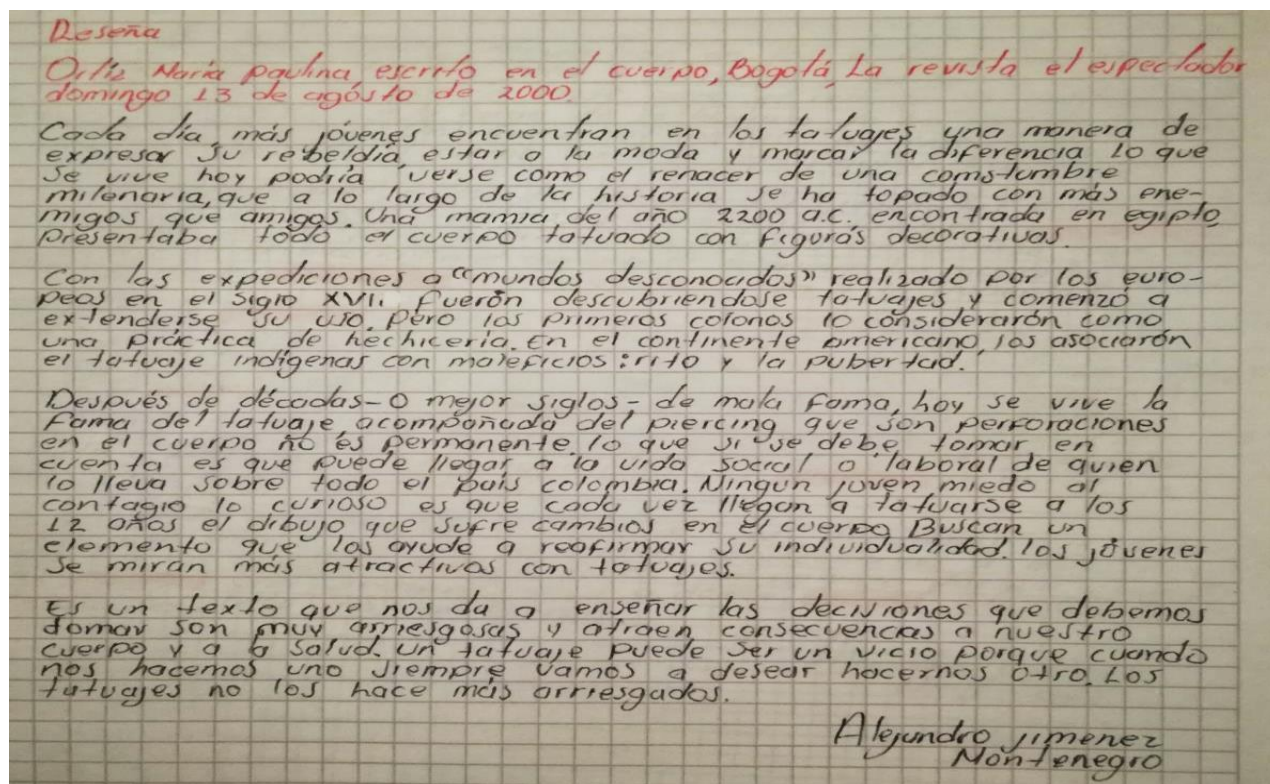 Reseña
Ortiz María paulina, escrito en el cuerpo, Bogotá, La revista el espectador
domingo 13 de agósto de 2000.
Cada día más jóvenes encuentran en los tatuajes una manera de
expresar su rebeldía, estar a la moda y marcar la diferencia lo que
se vive hoy podría verse como el renacer de una comstumbre
milenaria, que a lo largo de la historia se ha topado con más ene-
migos que amigos. Una mamia del año 2200 a.c. encontrada en egipto,
presentaba todo el cuerpo tatuado con figurás decorativas.
Con las expediciones a "mundos desconocidos" realizado por los euro-
peos en el siglo XVII. fuerón descubriendose tatuajes y comenzó a
extenderse su uso. pero los primeros colonos lo considerarón como
una práctica de hechicería. En el continente americano, los asociarón
el tatuaje indígenas con maleficios: rito y la pubertad.
Después de décadas - o mejor siglos - de mala fama, hoy se vive la
fama del tatuaje, acompañada del piercing que son perforaciones
en el cuerpo no es permanente, lo que si se debe tomar en
cuenta es que puede llegar a la vida social o laboral de quien
lo lleva sobre todo el país colombia. Ningún joven miedo al
contagio lo curioso es que cada vez llegan a tatuarse a los
12 años el dibujo que sufre cambios en el cuerpo Buscan un
elemento que los ayude a reafirmar su individualidad. los jóvenes
se miran más atractivos con tatuajes.
Es un texto que nos da a enseñar las decisiones que debemos
tomar son muy arriesgosas y atraen consecuencias a nuestro
cuerpo y a la salud. un tatuaje puede ser un vicio porque cuando
nos hacemos uno siempre vamos a desear hacernos otro. Los
tatuajes no los hace más arriesgados.
Alejandro jimenez
Montenegro